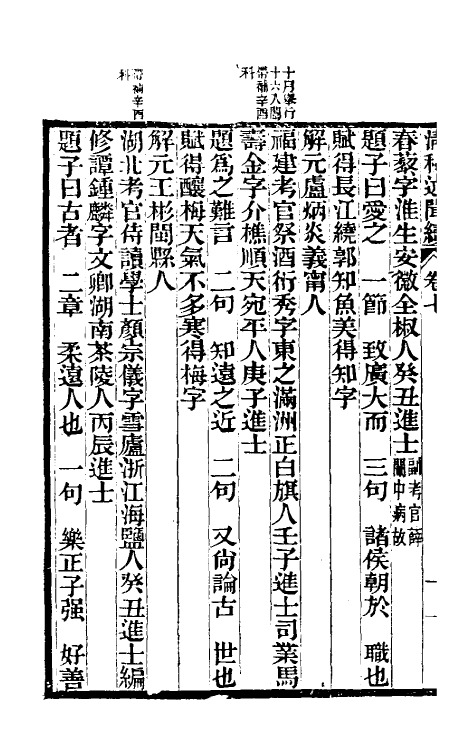 十月舉行
十六人闈
帶補辛酉
科
帶補辛酉
科
清祕述聞續 卷七
春黎字淮生安徽全椒人癸丑進士副考官薛
闈中病故
題子曰愛之 一節 致廣大而 三句 諸侯朝於 職也
賦得長江繞郭知魚美得知字
解元盧炳炎義甯人
福建考官祭酒衍秀字東之滿洲正白旗人壬子進士司業馬
壽金字介樵順天宛平人庚子進士
題爲之難言 二句 知遠之近 二句 又尙論古 世也
賦得釀梅天氣不多寒得梅字
解元王彬閩縣人
湖北考官侍讀學士顏宗儀字雪廬浙江海鹽人癸丑進士編
修譚鍾麟字文卿湖南茶陵人丙辰進士
題子曰古者 二章 柔遠人也 一句 樂正子强 好善